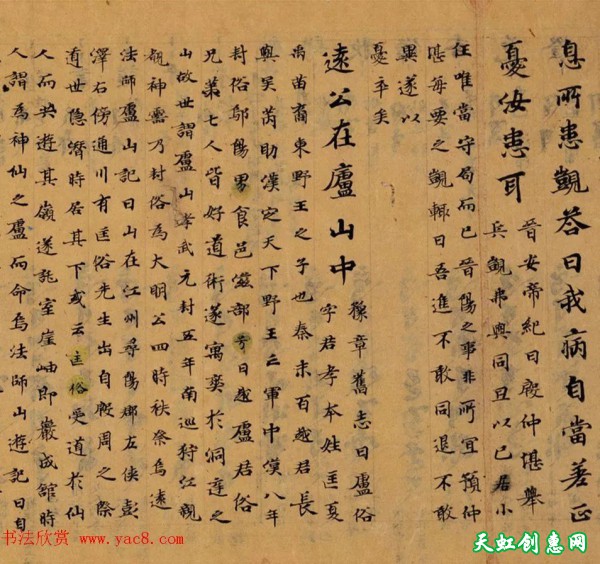 息所患觀答曰我病自當差正
憂汝患耳
晉安帝紀曰殷仲堪舉
兵觀弗與同且以己居小
任唯當守局而已晉陽之事非所宜預仲
堪每要之觀輒曰吾進不敢同退不敢
異遂以
憂卒矣
遠公在廬山中
豫章舊志曰廬俗
字君孝本姓匡夏
禹苗裔東野王之子也秦末百越君長
與吳芮助漢定天下野王亡軍中漢八年
封俗鄔陽男食邑茲部曰越廬君俗
兄弟七人皆好道術遂寓爽於洞庭之
山故世謂廬山孝武元封五年南巡狩江親
覩神靈乃封俗為大明公四時秩祭焉遠
法師廬山記曰山在江州尋陽郡左俠彭
澤右傍通川有匡俗先生出自殷周之際
遁世隱潛時居其下或云匡俗受道於仙
人而共遊其嶺遂託室崖岫即巖成館時
人謂為神仙之廬而命焉法師山遊記曰自
书法欣赏 www.yac8.com
天虹创惠网